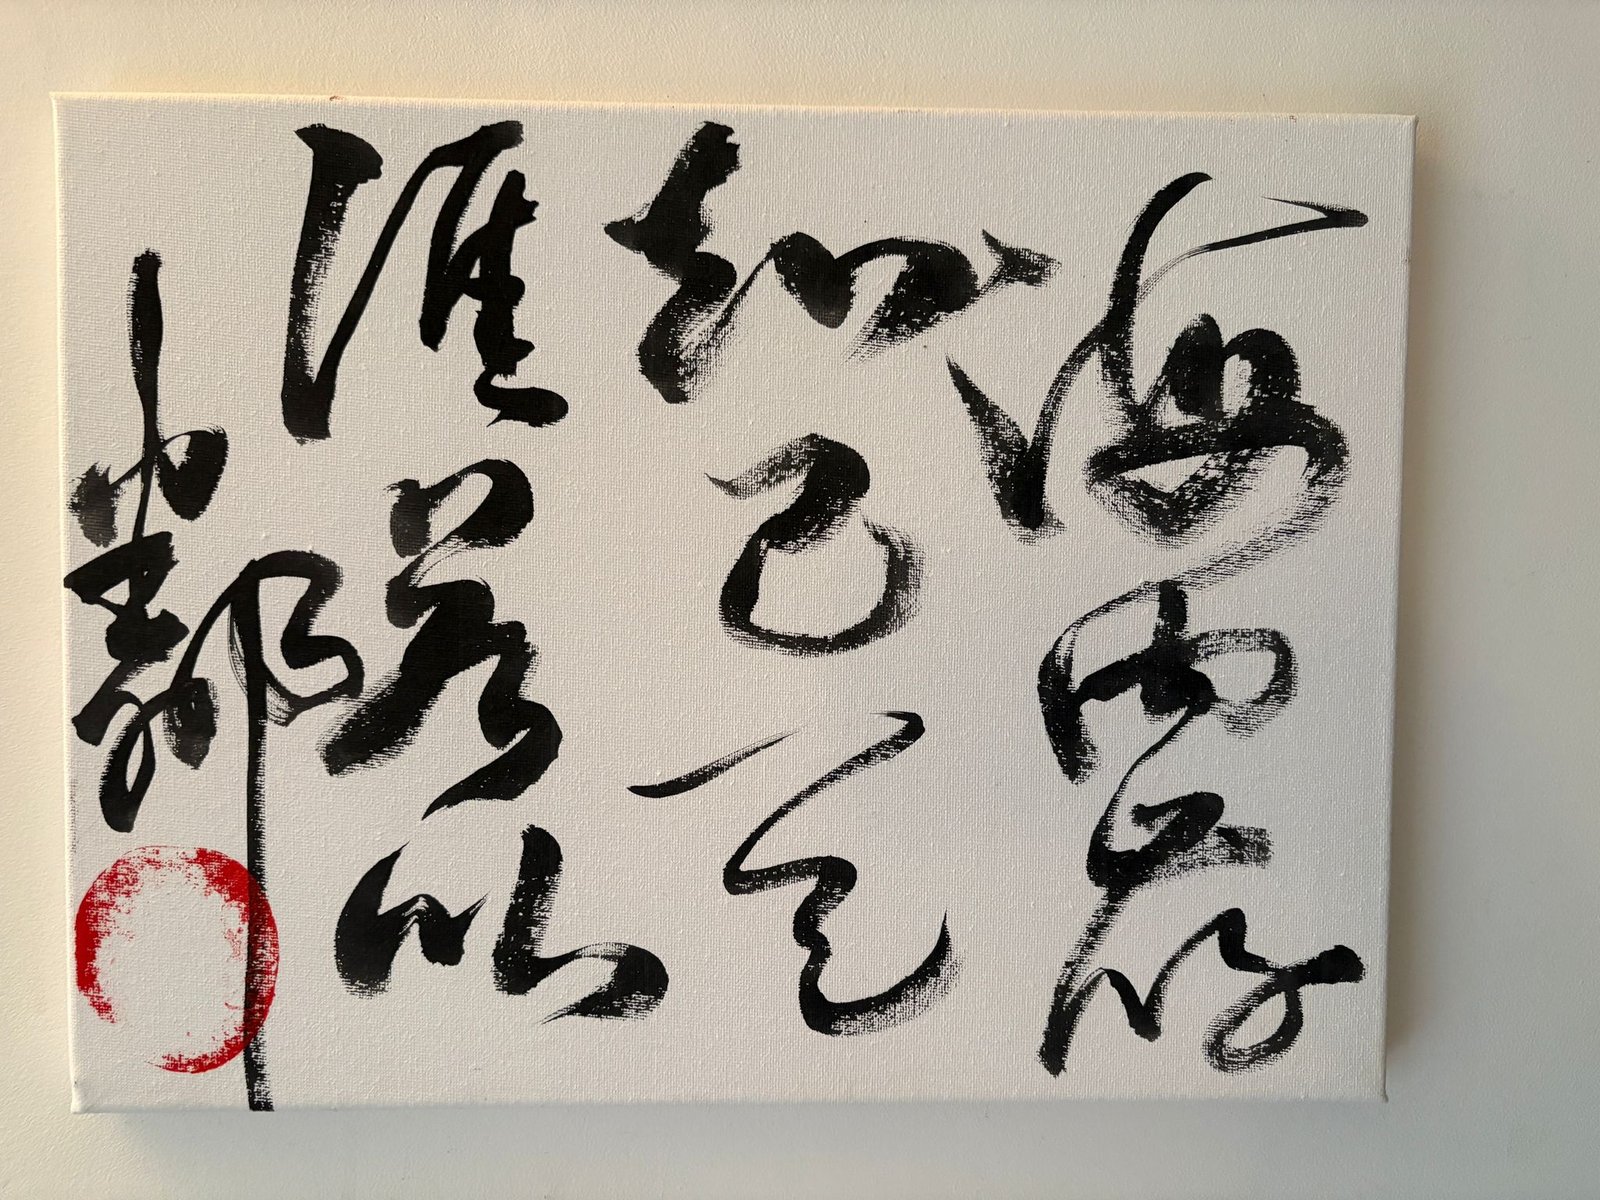 海内存
知己天
涯若比
鄰